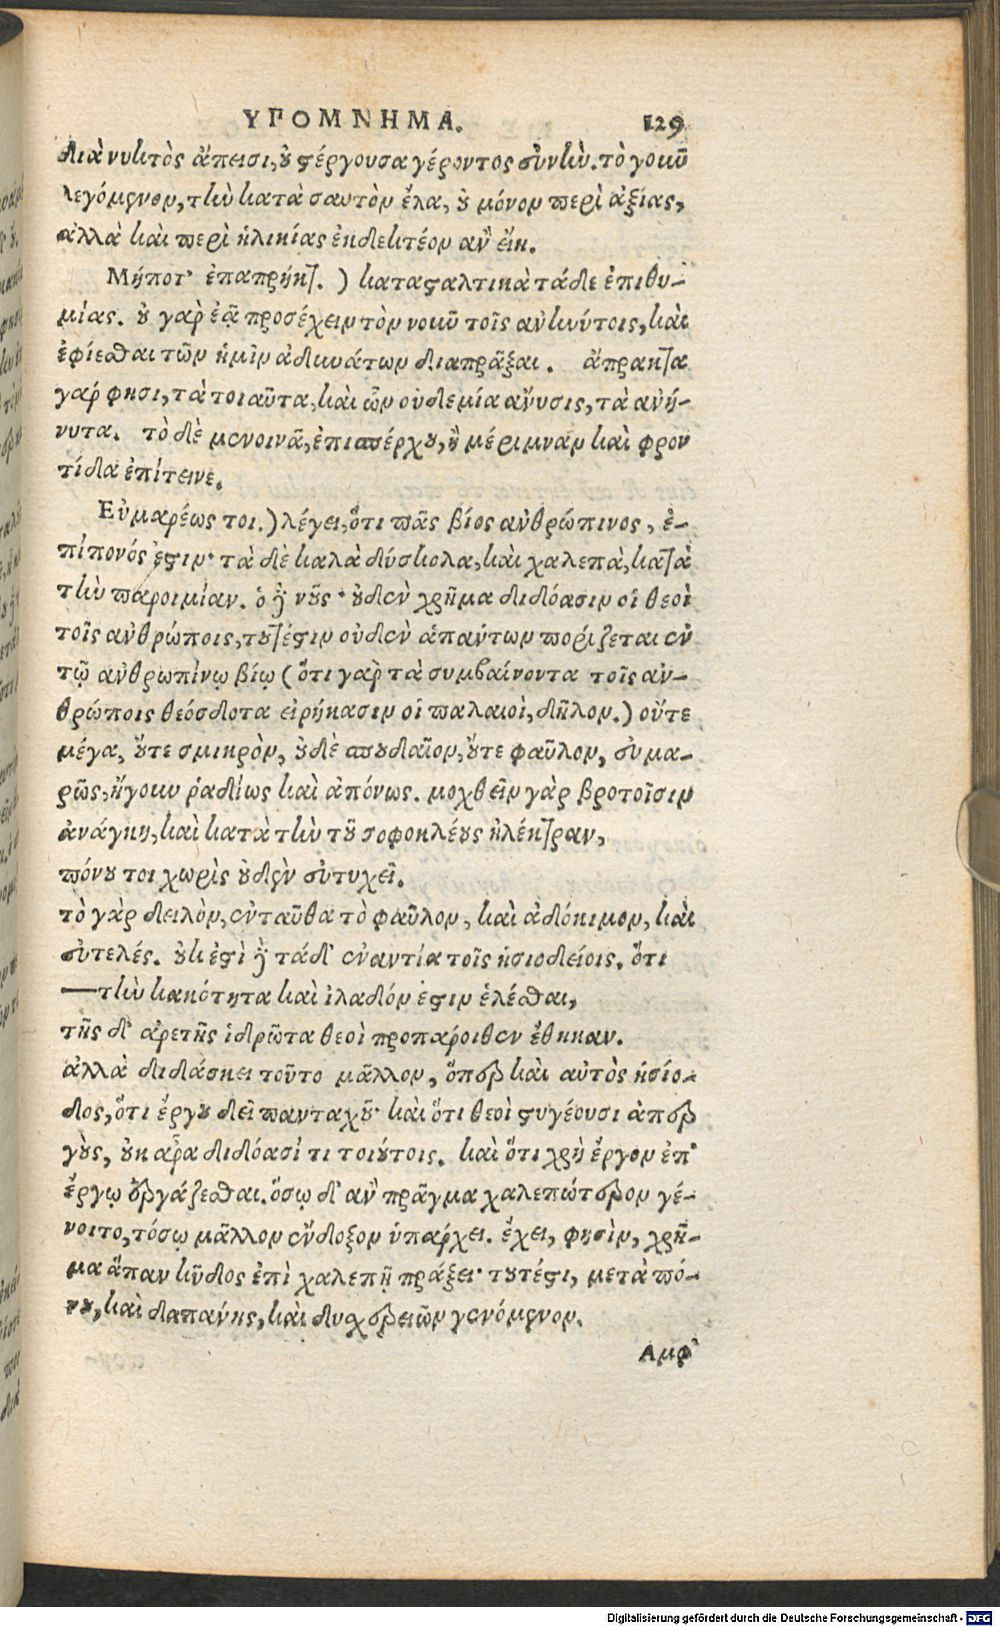 ΥΠΟΜΝΗΜΑ. 129
διὰ νυκτὸς ἄπεισι, οὐ στέργουσα γέροντος εὐνὴν. τὸ γοιῦ
λεγόμενον, τὴν κατὰ σαυτὸν ἔλα, οὐ μόνον περὶ ἀξίας,
ἀλλὰ καὶ περὶ ἡλικίας ἐκδεκτέον ἂν εἴη.
Μήποτ' ἐπαπρήκτ. ) κατασταλτικὰ τάδε ἐπιθυ-
μίας. οὐ γὰρ ἐᾷ προσέχειν τὸν νοιῦ τοῖς ἀνινύτοις, καὶ
ἐφίεσθαι τῶν ἡμῖν ἀδυνάτων διαπρᾶξαι. ἄπρακτα
γάρ φησι, τὰ τοιαῦτα, καὶ ὧν οὐδεμία ἄνυσις, τὰ ἀνή-
νυτα. τὸ δὲ μενοινᾶ, ἐπισπέρχου, ἢ μέριμναν καὶ φρον
τίδα ἐπίτεινε.
Εὐμαρέως τοι. ) λέγει, ὅτι πᾶς βίος ἀνθρώπινος, ἐ-
πίπονός ἐστιν· τὰ δὲ καλὰ δύσκολα, καὶ χαλεπὰ, κατὰ
τὴν παροιμίαν. ὁ δὲ νοῦς· οὐδὲν χρῆμα διδόασιν οἱ θεοὶ
τοῖς ἀνθρώποις, τουτέστιν οὐδὲν ἁπάντων πορίζεται ἐν
τῷ ἀνθρωπίνῳ βίῳ (ὅτι γὰρ τὰ συμβαίνοντα τοῖς ἀν-
θρώποις θεόσδοτα εἰρήκασιν οἱ παλαιοὶ, δῆλον.) οὔτε
μέγα, οὔτε σμικρὸν, οὐδὲ σπουδαῖον, οὔτε φαῦλον, εὐμα-
ρῶς, ἤγοιυ ῥαδίως καὶ ἀπόνως. μοχθεῖν γὰρ βροτοῖσιν
ἀνάγκη, καὶ κατὰ τὴν τοῦ σοφοκλέους ἠλέκτραν,
πόνου τοι χωρὶς οὐδὲν εὐτυχεῖ.
τὸ γὰρ δειλὸν, ἐνταῦθα τὸ φαῦλον, καὶ ἀδόκιμον, καὶ
εὐτελές. οὐκ ἐστὶ δὲ τάδ' ἐναντία τοῖς ἡσιοδείοις. ὅτι
—τὴν κακότητα καὶ ἰλαδόν ἐστιν ἑλέσθαι,
τῆς δ' ἀρετῆς ἱδρῶτα θεοὶ προπάροιθεν ἔθηκαν.
ἀλλὰ διδάσκει τοῦτο μᾶλλον, ὅπερ καὶ αὐτὸς ἡσίο-
δος, ὅτι ἔργου δεῖ πανταχοῦ· καὶ ὅτι θεοὶ στυγέουσι ἀπερ
γοὺς, οὐκ ἆρα διδόασί τι τοιούτοις. καὶ ὅτι χρὴ ἔργον ἐπ'
ἔργῳ ἐργάζεσθαι. ὅσῳ δ' ἂν πρᾶγμα χαλεπώτερον γέ-
νοιτο, τόσῳ μᾶλλον ἔνδοξον ὑπάρχει. ἔχει, φησὶν, χρῆ-
μα ἅπαν κῦδος ἐπὶ χαλεπῇ πράξει· τουτέστι, μετὰ πό-
νου, καὶ δαπάνης, καὶ δυσχερειῶν γενόμενον.
Αμφ'
Digitalisierung gefördert durch die Deutsche Forschungsgemeinschaft - DFG